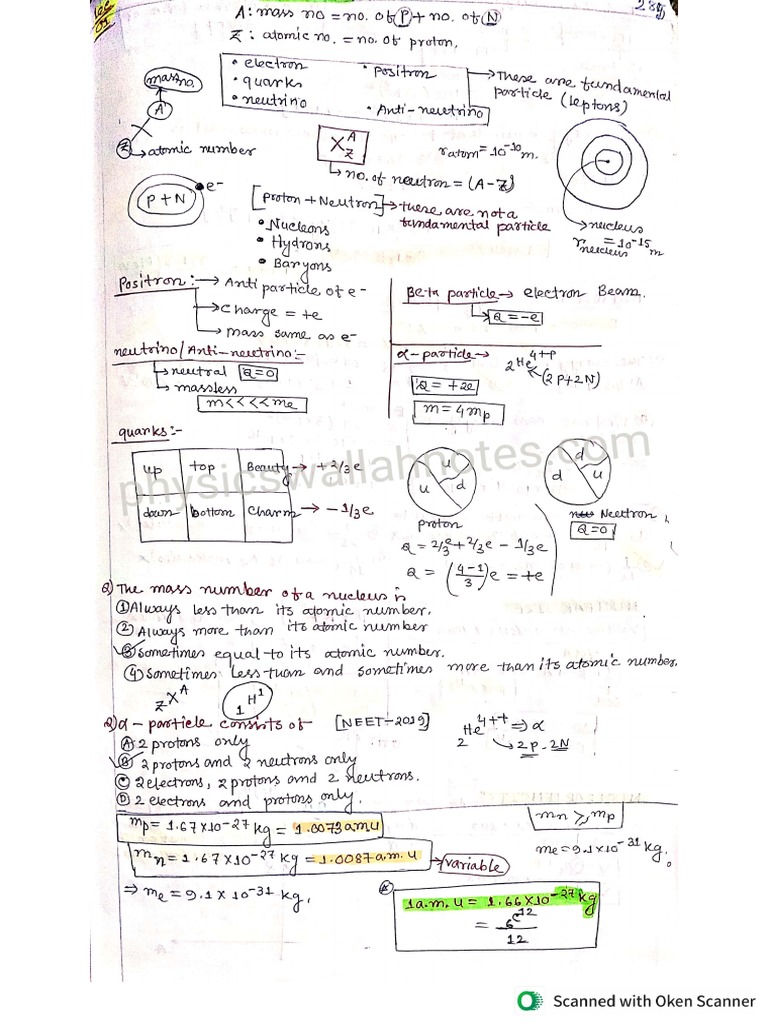 A: mass no = no. of P + no. of N
Z: atomic no. = no. of proton.
• electron
• quarks
• neutrino
• Positron
• Anti-neutrino
→ These are fundamental particle (leptons)
mass no.
A
Z → atomic number
X A Z
↳ no. of neutron = (A-Z)
r atom = 10⁻¹⁰ m.
P + N
e⁻
[Proton + Neutron] → these are not a fundamental particle
• Nucleons
• Hydrons
• Baryons
→ nucleus
r neucleus = 10⁻¹⁵ m
Positron :→ Anti particle of e-
→ charge = +e
→ mass same as e-
Beta particle → electron Beam.
↳ Q = -e
neutrino/Anti-neutrino:-
↳ neutral Q=0
↳ massless
m<<<<me
α-particle →
₂He⁴⁺⁺
(2P+2N)
Q = +2e
m = 4mp
quarks:-
up top Beauty → +2/3e
down bottom Charm → -1/3e
u u d
proton
Q = 2/3e + 2/3e - 1/3e
Q = (4-1/3)e = +e
d d u
Neectron
Q=0
physicswallahnotes.com
Q) The mass number of a nucleus is
① Always less than its atomic number.
② Always more than its atomic number
③ sometimes equal to its atomic number.
④ sometimes less tuan and sometimes more than its atomic number.
zXᴬ ₁H¹
Q) α-particle consists of [NEET-2019]
Ⓐ 2 protons only
Ⓑ 2 protons and 2 neutrons only
Ⓒ 2 electrons, 2 protons and 2 neutrons.
Ⓓ 2 electrons and protons only.
₂He⁴⁺⁺ ⇒ α
↳ 2P-2N
mp = 1.67×10⁻²⁷ kg = 1.0073 a.m.u
mn = 1.67×10⁻²⁷ kg = 1.0087 a.m.u → variable
⇒ me = 9.1 × 10⁻³¹ kg.
mn ⩾ mp
me = 9.1×10⁻³¹ kg.
1 a.m.u = 1.66×10⁻²⁷ kg
= ₆C¹²/12
Scanned with Oken Scanner